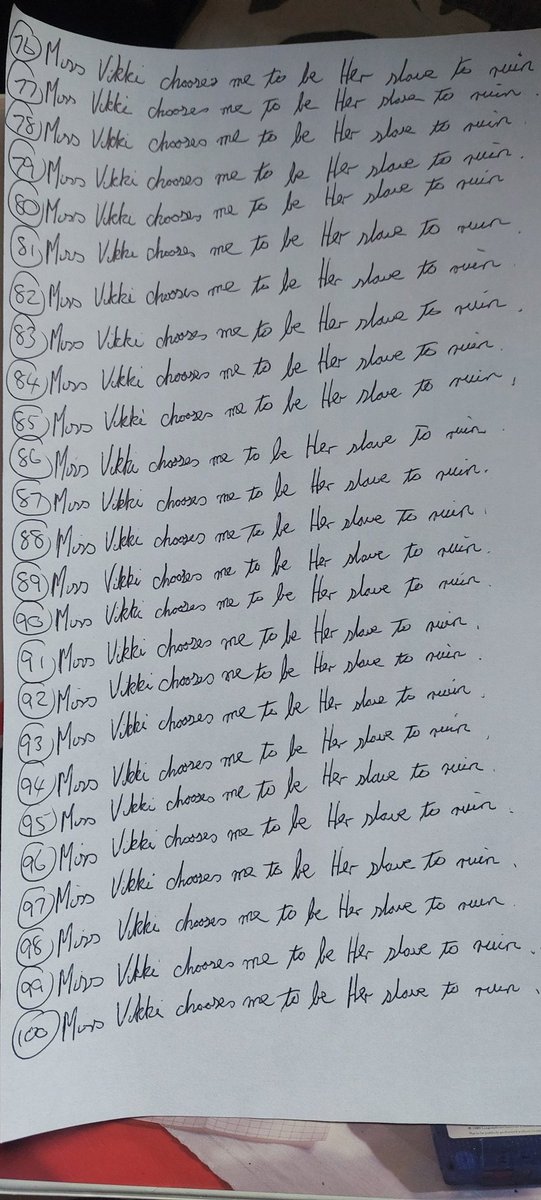 76 Miss Vikki chooses me to be Her slave to ruin
77 Miss Vikki chooses me to be Her slave to ruin.
78 Miss Vikki chooses me to be Her slave to ruin.
79 Miss Vikki chooses me to be Her slave to ruin.
80 Miss Vikki chooses me to be Her slave to ruin
81 Miss Vikki chooses me to be Her slave to ruin.
82 Miss Vikki chooses me to be Her slave to ruin.
83 Miss Vikki chooses me to be Her slave to ruin.
84 Miss Vikki chooses me to be Her slave to ruin.
85 Miss Vikki chooses me to be Her slave to ruin.
86 Miss Vikki chooses me to be Her slave to ruin.
87 Miss Vikki chooses me to be Her slave to ruin.
88 Miss Vikki chooses me to be Her slave to ruin.
89 Miss Vikki chooses me to be Her slave to ruin.
90 Miss Vikki chooses me to be Her slave to ruin.
91 Miss Vikki chooses me to be Her slave to ruin.
92 Miss Vikki chooses me to be Her slave to ruin.
93 Miss Vikki chooses me to be Her slave to ruin.
94 Miss Vikki chooses me to be Her slave to ruin.
95 Miss Vikki chooses me to be Her slave to ruin.
96 Miss Vikki chooses me to be Her slave to ruin.
97 Miss Vikki chooses me to be Her slave to ruin.
98 Miss Vikki chooses me to be Her slave to ruin.
99 Miss Vikki chooses me to be Her slave to ruin.
100 Miss Vikki chooses me to be Her slave to ruin.